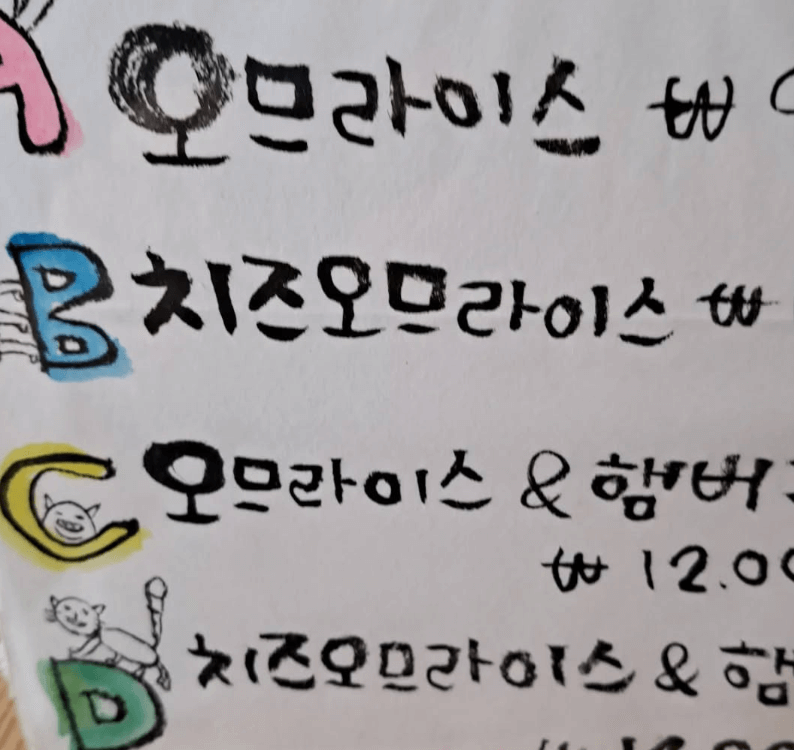 A 오므라이스 ₩
B 치즈오므라이스 ₩
C 오므라이스 & 햄버
₩ 12.00
D 치즈오므라이스 & 햄